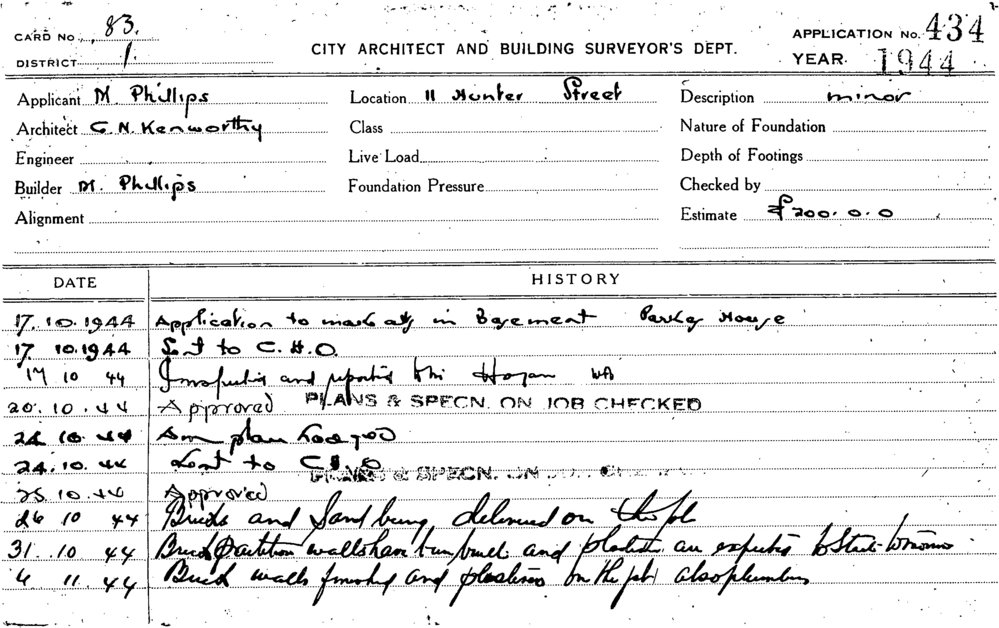 CARD No 83.
APPLICATION No. 434
DISTRICT 1
CITY ARCHITECT AND BUILDING SURVEYOR'S DEPT.
YEAR 1944
Applicant M Phillips
Location 11 Hunter Street
Description minor
Architect C. N. Kenworthy
Class
Nature of Foundation
Engineer
Live Load
Depth of Footings
Builder M. Phillips
Foundation Pressure
Checked by
Alignment
Estimate £200.0.0
DATE HISTORY
17.10.1944 Application to make alts in Basement House
17. 10.1944 Sent to C.H.O.
17 10 44 and Hogan
20.10.44 Approved PLANS & SPECN. ON JOB CHECKED
24 10 44 plan lodged
24.10.44 Sent to C
PLANS & SPECN. ON
25 10 44 Approved
26 10 44 Bricks and Sand being delivered on the job
31. 10 44 Brick partition walls have been built and to start tomorrow
4 11.44 Brick walls finished and on the job also plumbers